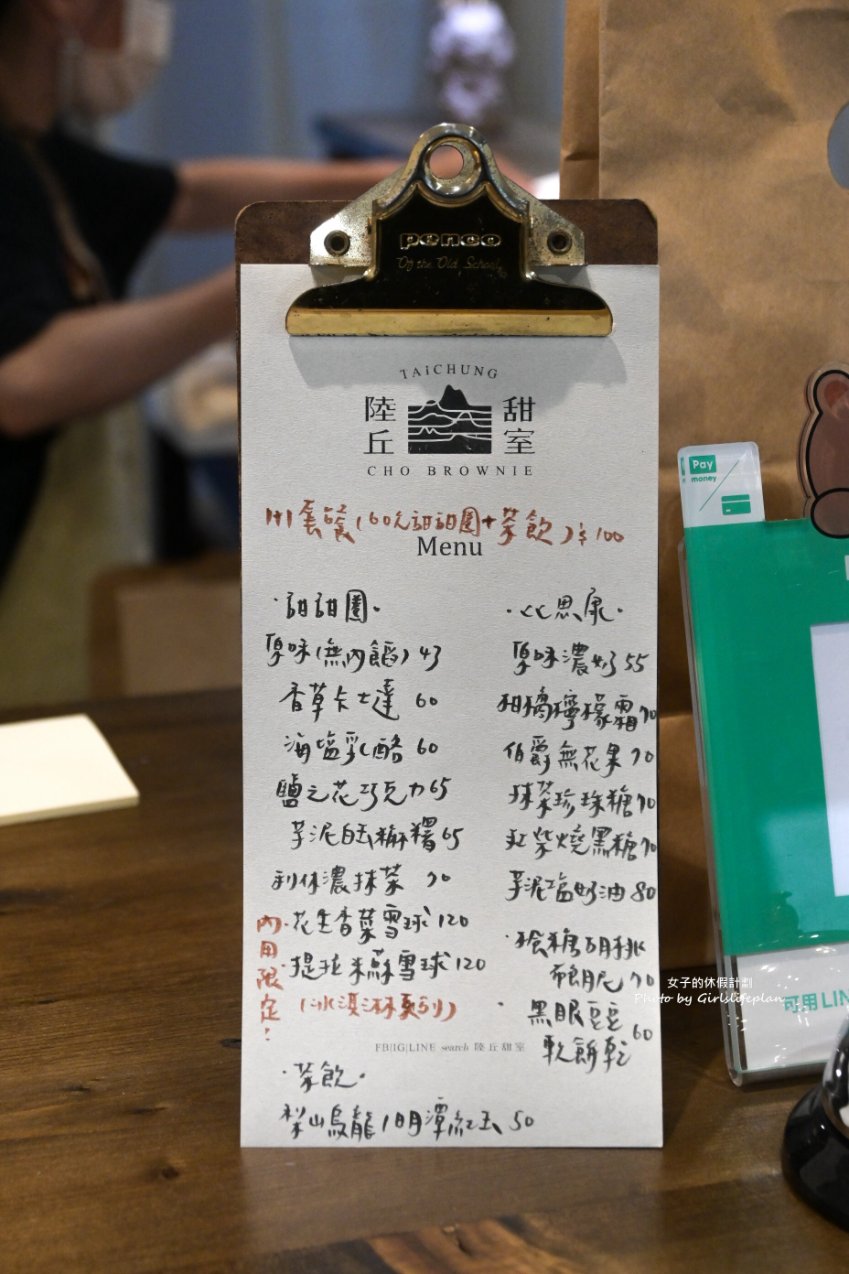 penco
Of the Old School
TAICHUNG
陸丘 甜室
CHO BROWNIE
1+1套餐(60元甜甜圈+茶飲)$100
Menu
·甜甜圈·
原味(無內餡) 43
香草卡士達 60
海塩乳酪 60
鹽之花巧克力 65
芋泥白玉麻糬 65
利休濃抹茶 70
內用限定!
·花生香菜雪球 120
·提拉米蘇雪球 120
(冰淇淋系列)
·比思康·
原味濃奶 55
柑橘檸檬霜 70
伯爵無花果 70
抹茶珍珠糖 70
紅柴燒黑糖 70
芋泥塩奶油 80
·楓糖胡桃
布朗尼 70
·黑眼豆豆
軟餅乾 60
FB|IG|LINE search 陸丘甜室
·茶飲·
梨山烏龍/日月潭紅玉 50
Pay
money
可用LIN
女子的休假計劃
Photo by Girlslifeplan